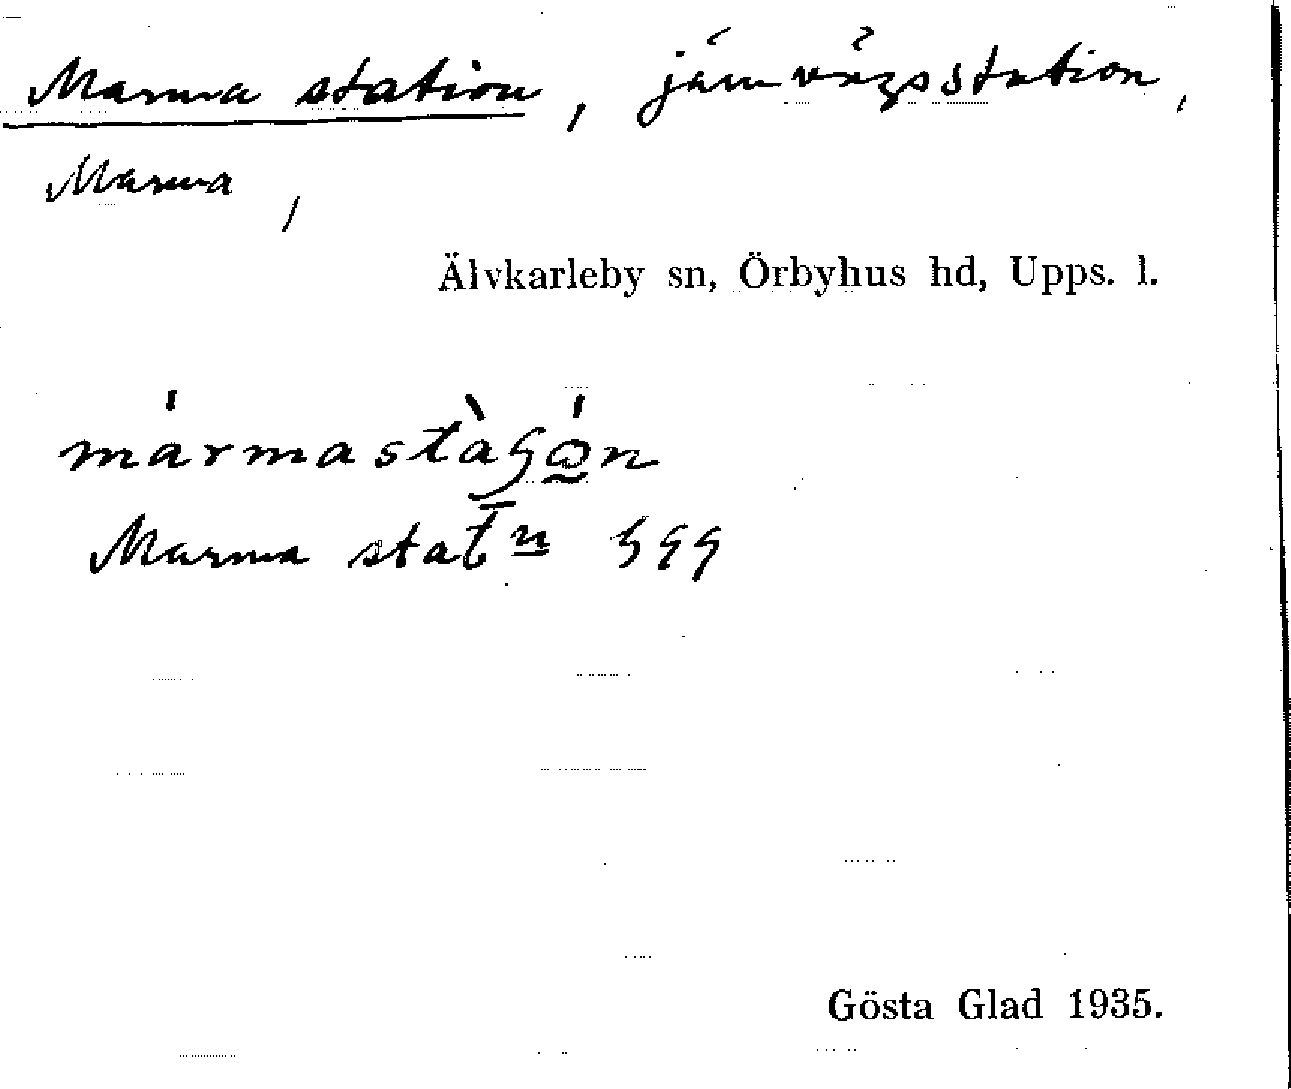 Marma station, järnvägsstation,
Marma,
Älvkarleby sn, Örbyhus hd, Upps. l.
Marma statn
Gösta Glad 1935.